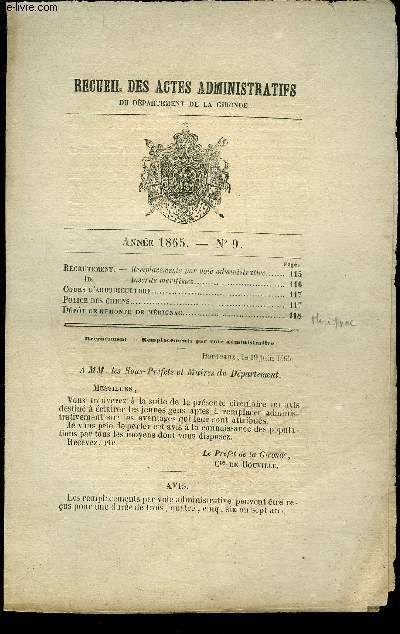 RECUEIL DES ACTES ADMINISTRATIFS
DU DÉPARTEMENT DE LA GIRONDE
ANNÉE 1865. — N° 9.
Pages
RECRUTEMENT. — Remplacements par voie administrative 115
ID. Inscrits maritimes 116
COURS D'ACCOUCHEMENT 117
POLICE DES CHIENS 117
DÉPÔT DE REMONTE DE MÉRIGNAC 118
Recrutement — Remplacements par voie administrative
BORDEAUX, le juin 1865.
A MM. les Sous-Préfets et Maires du Département.
MESSIEURS,
Vous trouverez à la suite de la présente circulaire un avis
destiné à éclairer les jeunes gens aptes à remplacer adminis-
trativement sur les avantages qui leur sont attribués.
Je vous prie de porter cet avis à la connaissance des popula-
tions par tous les moyens dont vous disposez.
Recevez, etc.
Le Préfet de la Gironde,
Cte DE BOUVILLE.
AVIS.
Les remplacements par voie administrative peuvent être re-
çus pour une durée de trois, quatre, cinq, six ou sept ans.